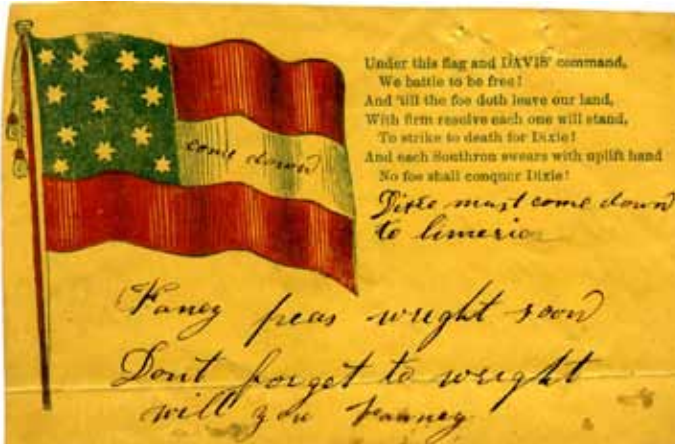 Under this flag and DAVIS' command,
We battle to be free!
And 'till the foe doth leave our land,
With firm resolve each one will stand,
To strike to death for Dixie!
And each Southron swears with uplift hand
No foe shall conquer Dixie!
come down
Dixie must come down
to
Faney peas wright soon
Dont forget to wright
will you Fanney